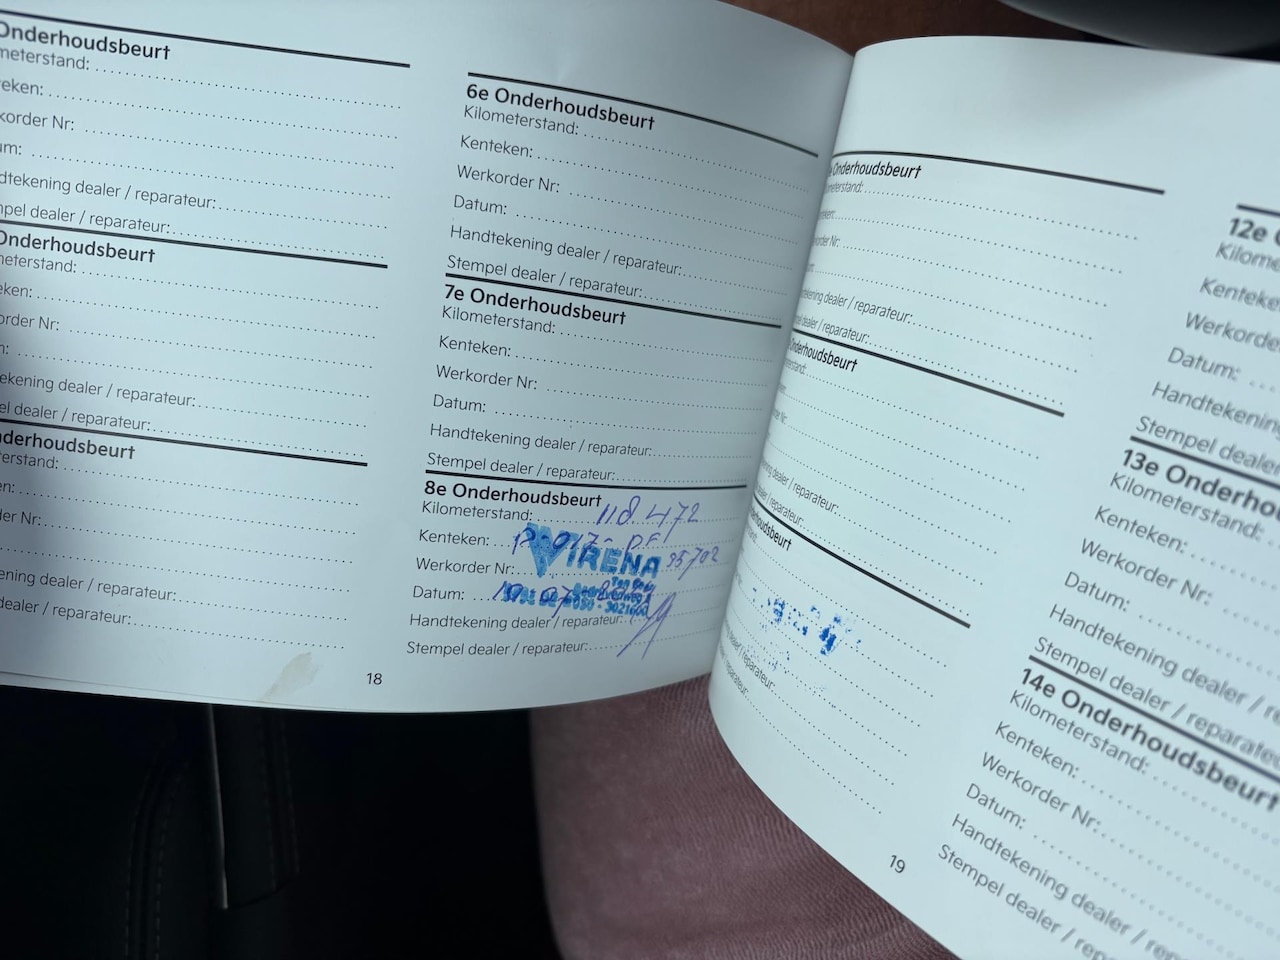 Onderhoudsbeurt
meterstand:
eken:
korder Nr:
um:
dtekening dealer / reparateur:
mpel dealer / reparateur:
Onderhoudsbeurt
meterstand:
eken:
order Nr:
ekening dealer / reparateur:
pel dealer / reparateur:
nderhoudsbeurt
erstand:
en:
der Nr:
ening dealer / reparateur:
dealer / reparateur:
6e Onderhoudsbeurt
Kilometerstand:
Kenteken:
Werkorder Nr:
Datum:
Handtekening dealer / reparateur:
Stempel dealer / reparateur:
7e Onderhoudsbeurt
Kilometerstand:
Kenteken:
Werkorder Nr:
Datum:
Handtekening dealer / reparateur:
Stempel dealer / reparateur:
8e Onderhoudsbeurt
Kilometerstand: 118 472
Kenteken:
Werkorder Nr: VIRENA 95702
Datum:
Handtekening dealer / reparateur:
Stempel dealer / reparateur:
18
Onderhoudsbeurt
meterstand:
teken:
korder Nr:
ekening dealer / reparateur:
pel dealer / reparateur:
Onderhoudsbeurt
dealer / reparateur:
dealer / reparateur:
derhoudsbeurt
dealer / reparateur:
reparateur:
19
12e
Kilome
Kenteke
Werkorde
Datum:
Handtekening
Stempel dealer
13e Onderho
Kilometerstand:
Kenteken:
Werkorder Nr:
Datum:
Handtekening dealer / r
Stempel dealer / reparate
14e Onderhoudsbeurt
Kilometerstand:
Kenteken:
Werkorder Nr:
Datum:
Handtekening dealer / rep
Stempel dealer / rep